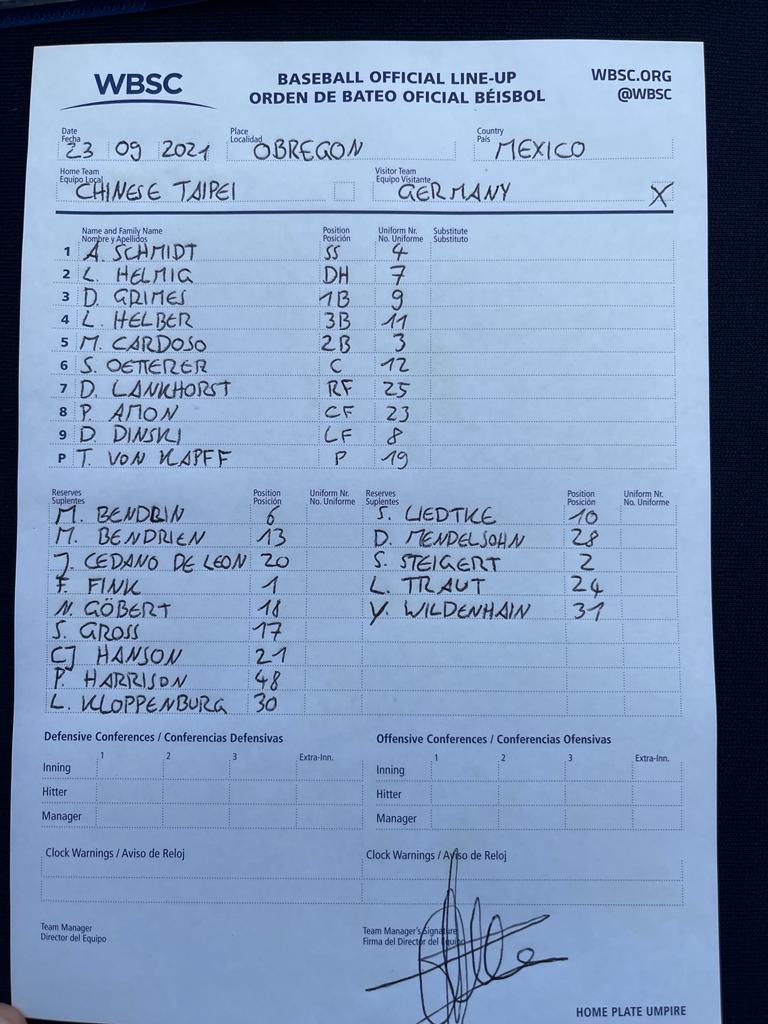 WBSC
BASEBALL OFFICIAL LINE-UP
ORDEN DE BATEO OFICIAL BÉISBOL
WBSC.ORG
@WBSC
Date
Fecha
23 09 2021
Place
Localidad
OBREGON
Country
País
MEXICO
Home Team
Equipo Local
CHINESE TAIPEI
Visitor Team
Equipo Visitante
GERMANY X
Name and Family Name Position Uniform Nr. Substitute
Nombre y Apellidos Posición No. Uniforme Substituto
1 A. SCHMIDT SS 4
2 L. HELMIG DH 7
3 D. GRIMES 1B 9
4 L. HELBER 3B 11
5 M. CARDOSO 2B 3
6 S. OETTERER C 12
7 D. LANKHORST RF 25
8 P. AMON CF 23
9 D. DINSKI LF 8
P T. VON KAPFF P 19
Reserves Position Uniform Nr.
Suplentes Posición No. Uniforme
M. BENDRIN 6
M. BENDRIEN 13
J. CEDANO DE LEON 20
F. FINK 1
N. GÖBERT 18
S. GROSS 17
CJ HANSON 21
P. HARRISON 48
L. KLOPPENBURG 30
Reserves Position Uniform Nr.
Suplentes Posición No. Uniforme
S. LIEDTKE 10
D. MENDELSOHN 28
S. STEIGERT 2
L. TRAUT 24
Y. WILDENHAIN 31
Defensive Conferences / Conferencias Defensivas
1 2 3 Extra-Inn.
Inning
Hitter
Manager
Offensive Conferences / Conferencias Ofensivas
1 2 3 Extra-Inn.
Inning
Hitter
Manager
Clock Warnings / Aviso de Reloj
Clock Warnings / Aviso de Reloj
Team Manager
Director del Equipo
Team Manager's Signature
Firma del Director del Equipo
HOME PLATE UMPIRE